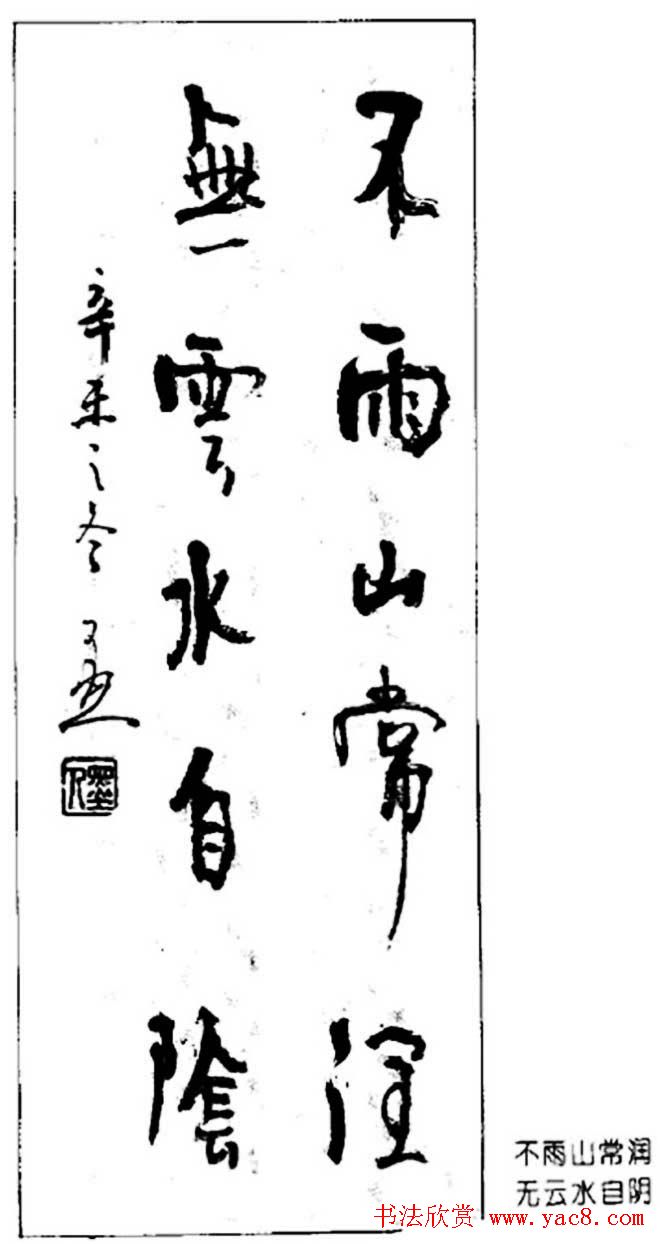 不雨山常润
無雲水自陰
辛未之冬
不雨山常润
无云水自阴
书法欣赏 www.yac8.com